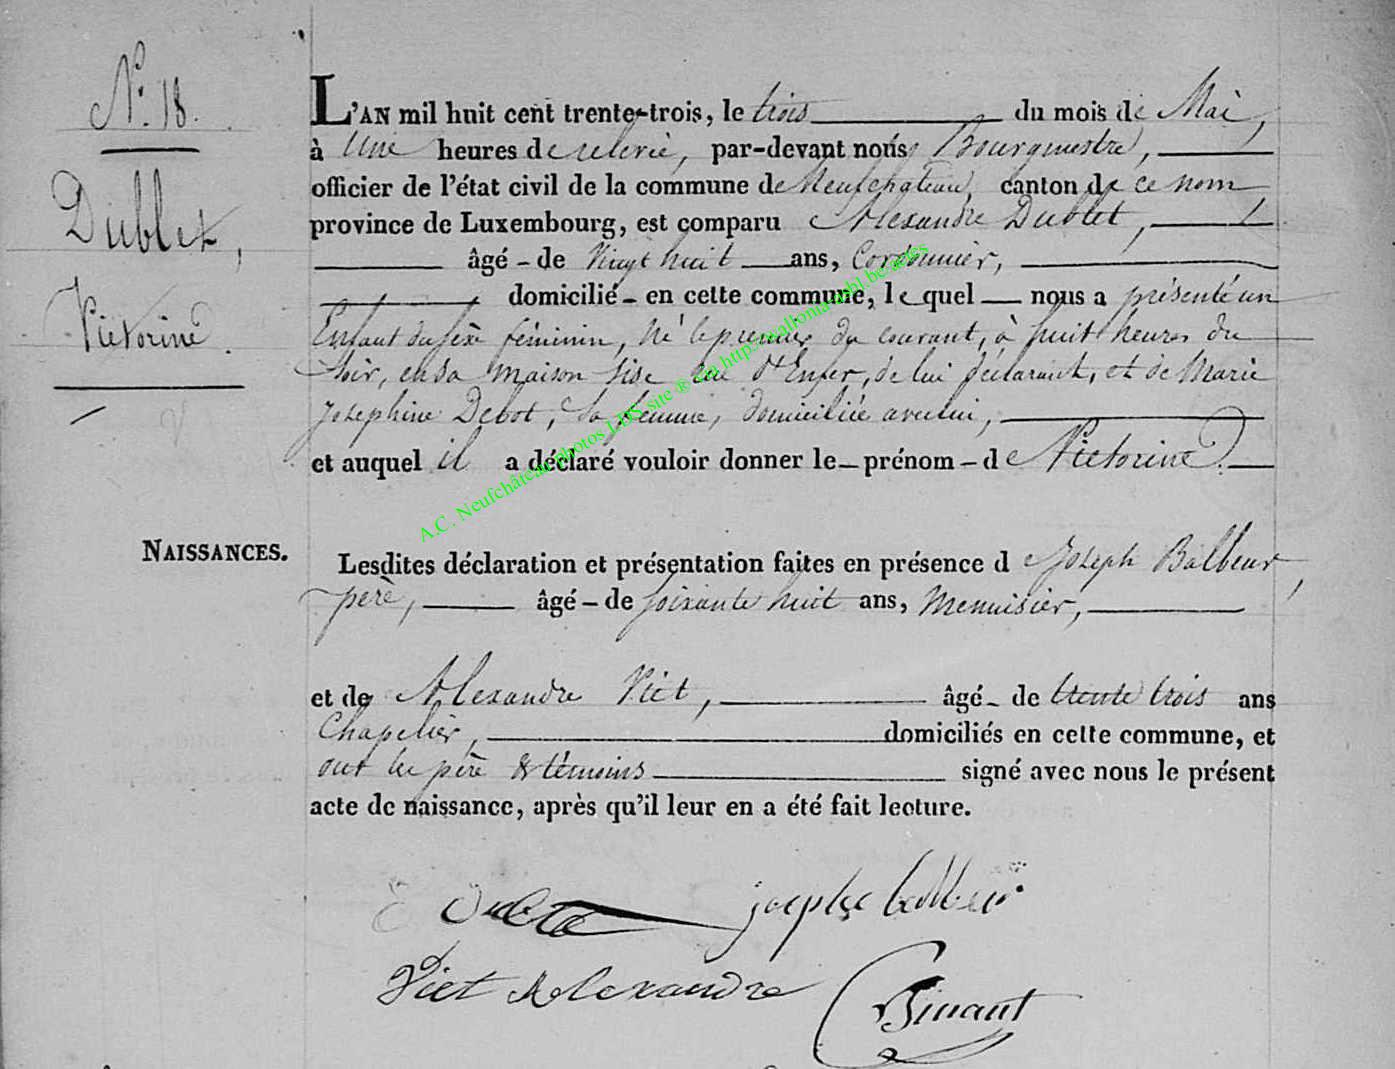 N.° 18.
Dublet,
Victorine.
L'AN mil huit cent trente-trois, le trois du mois de Mai,
à Une heures de relevée, par-devant nous Bourgmestre,
officier de l'état civil de la commune de Neufchateau, canton de ce nom
province de Luxembourg, est comparu Alexandre Dublet,
âgé - de Vingt huit ans, Cordonnier,
domicilié - en cette commune, lequel nous a présenté un
Enfant du sexe féminin, né le premier du courant, à huit heures du
Soir, en sa maison sise rue d'Enfer, de lui déclarant, et de Marie
Josephine Debot, Sa femme, domiciliée avec lui,
et auquel il a déclaré vouloir donner le - prénom - de Victorine.
NAISSANCES.
Lesdites déclaration et présentation faites en présence de Joseph Balbeur,
père, âgé - de soixante huit ans, Menuisier,
et de Alexandre Viet, âgé - de trente trois ans
Chapelier, domiciliés en cette commune, et
ont les père & témoins signé avec nous le présent
acte de naissance, après qu'il leur en a été fait lecture.
Viet Alexandre
A.C. Neufchâteau photos LDS site ® via http: